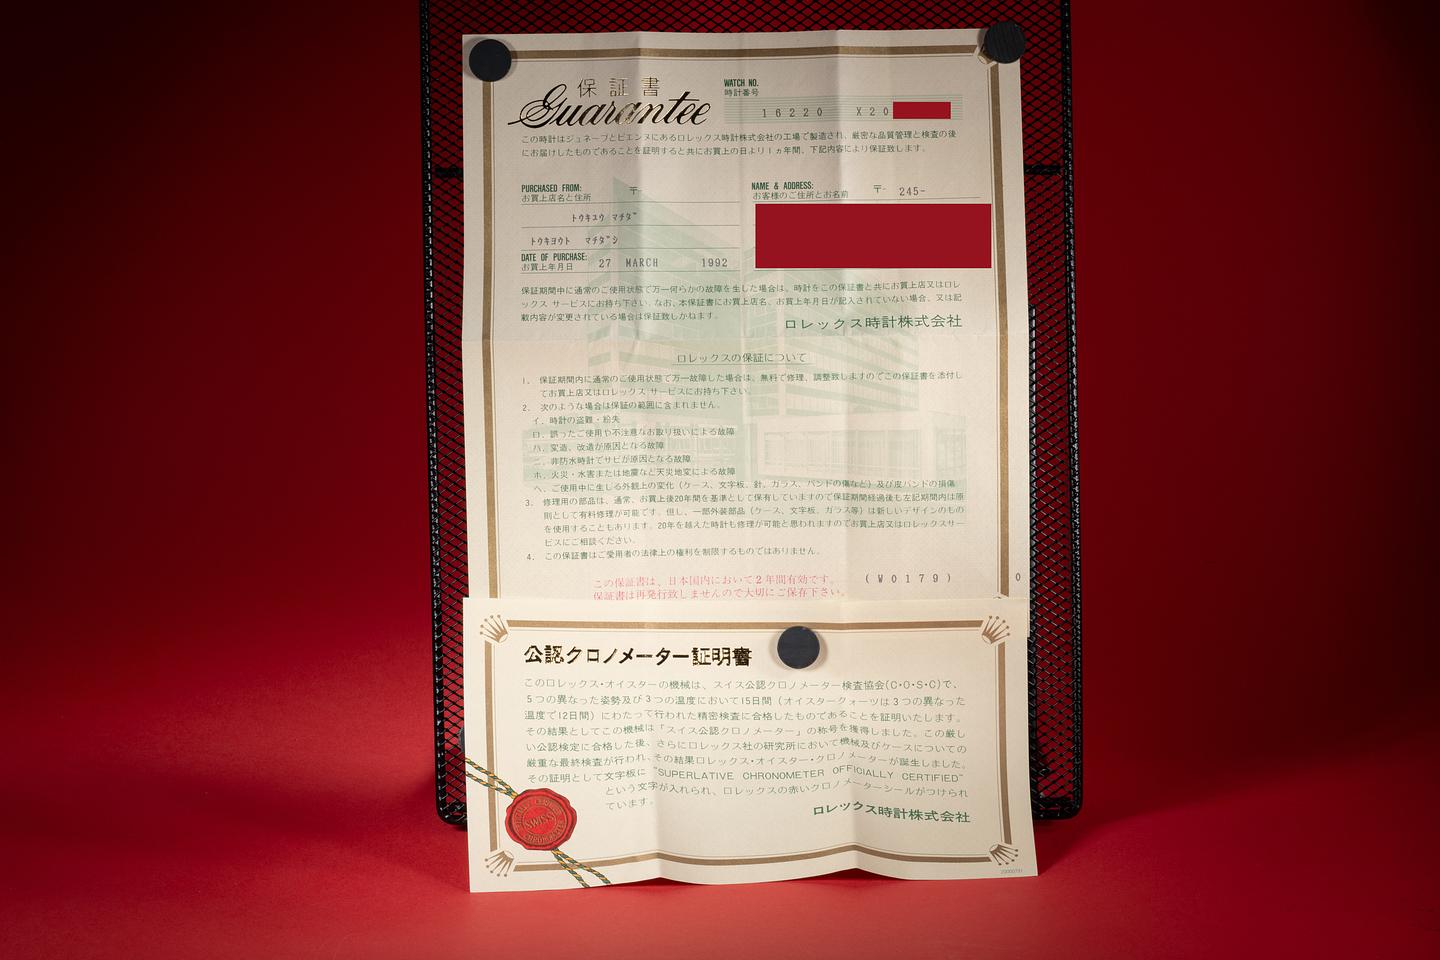 保証書
Guarantee
WATCH NO.
時計番号
16220 X20
この時計はジュネーブとビエンヌにあるロレックス時計株式会社の工場で製造され、厳密な品質管理と検査の後
にお届けしたものであることを証明すると共にお買上の日より1ヵ年間、下記内容により保証致します。
PURCHASED FROM:
お買上店名と住所
〒-
トウキユウ マチダ゛
トウキヨウト マチダ゛シ
DATE OF PURCHASE:
お買上年月日
27 MARCH 1992
NAME & ADDRESS:
お客様のご住所とお名前
〒- 245-
保証期間中に通常のご使用状態で万一何らかの故障を生した場合は、時計をこの保証書と共にお買上店又はロレ
ックス サービスにお持ち下さい。なお、本保証書にお買上店名、お買上年月日が記入されていない場合、又は記
載内容が変更されている場合は保証致しかねます。
ロレックス時計株式会社
ロレックスの保証について
1. 保証期間内に通常のご使用状態で万一故障した場合は、無料で修理、調整致しますのでこの保証書を添付し
てお買上店又はロレックス サービスにお持ち下さい。
2. 次のような場合は保証の範囲に含まれません。
イ. 時計の盗難・紛失
ロ. 誤ったご使用や不注意なお取り扱いによる故障
ハ. 変造、改造が原因となる故障
ニ. 非防水時計でサビが原因となる故障
ホ. 火災・水害または地震など天災地変による故障
ヘ. ご使用中に生じる外観上の変化（ケース、文字板、針、ガラス、バンドの傷など）及び皮バンドの損傷
3. 修理用の部品は、通常、お買上後20年間を基準として保有していますので保証期間経過後も左記期間内は原
則として有料修理が可能です。但し、一部外装部品（ケース、文字板、ガラス等）は新しいデザインのもの
を使用することもあります。20年を越えた時計も修理が可能と思われますのでお買上店又はロレックスサー
ビスにご相談ください。
4. この保証書はご愛用者の法律上の権利を制限するものではありません。
この保証書は、日本国内において2年間有効です。
保証書は再発行致しませんので大切にご保存下さい。
(W0179) 0
公認クロノメーター証明書
このロレックス・オイスターの機械は、スイス公認クロノメーター検査協会(C・O・S・C)で、
5つの異なった姿勢及び3つの温度において15日間（オイスタークォーツは3つの異なった
温度で12日間）にわたって行われた精密検査に合格したものであることを証明いたします。
その結果としてこの機械は「スイス公認クロノメーター」の称号を獲得しました。この厳し
い公認検定に合格した後、さらにロレックス社の研究所において機械及びケースについての
厳重な最終検査が行われ、その結果ロレックス・オイスター・クロノメーターが誕生しました。
その証明として文字板に "SUPERLATIVE CHRONOMETER OFFICIALLY CERTIFIED"
という文字が入れられ、ロレックスの赤いクロノメーターシールがつけられ
ています。
ロレックス時計株式会社
SWISS